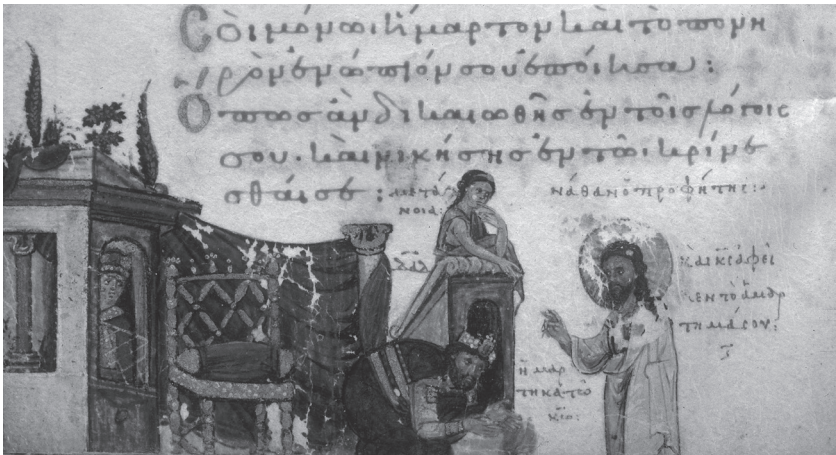 Σοὶ μόνωι ἥμαρτον καὶ τὸ πονη
ρὸν ἐνώπιόν σου ἐποίησα:
Ὅπως ἂν δικαιωθῆς ἐν τοῖς λόγοις
σου· καὶ νικήσης ἐν τῶι κρίνε
σθαί σε:
μετά
νοια:
νάθαν ὁ προφήτης:
καὶ κς ἀφεῖ
λεν τὸ ἁμάρ
τημά σου:
ἡμάρ
τηκα τῶ
κω: